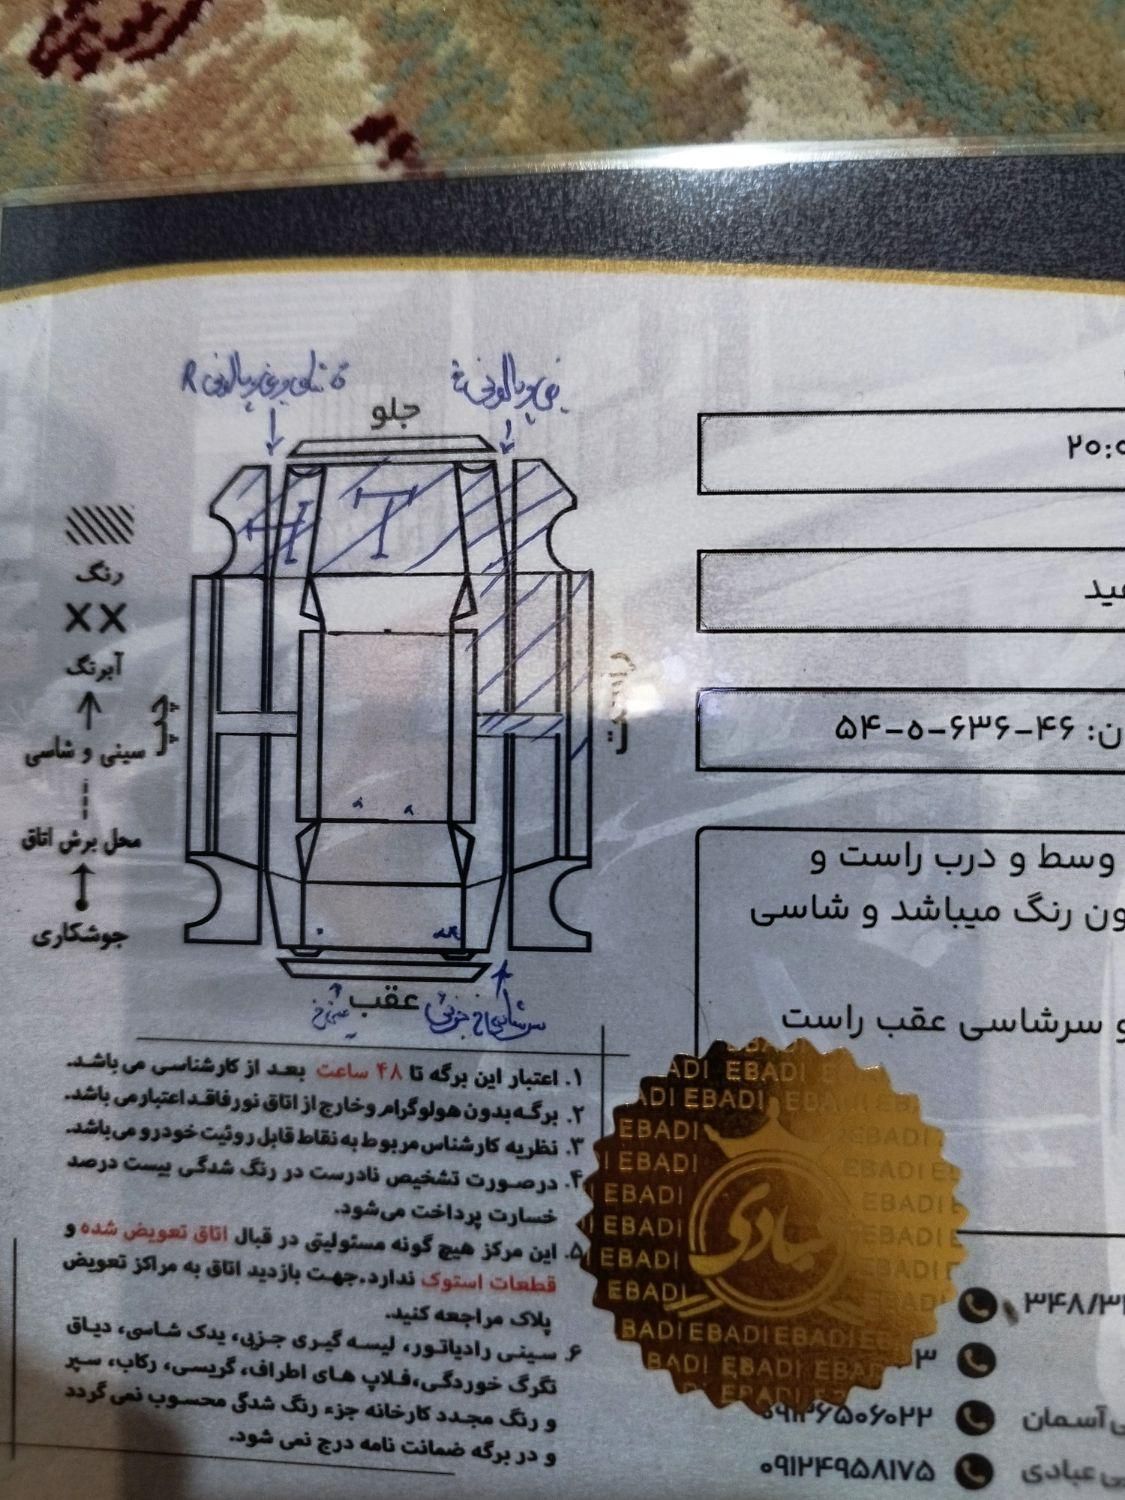 جلو
۲۰:۰
رنگ
X X
آبرنگ
سینی و شاسی
محل برش اتاق
جوشکاری
چپ
راست
T
T
عقب
ن: ۴۶-۶۳۶-۵-۵۴
وسط و درب راست و
ون رنگ میباشد و شاسی
و سرشاسی عقب راست
۱. اعتبار این برگه تا ۴۸ ساعت بعد از کارشناسی می باشد.
۲. برگه بدون هولوگرام و خارج از اتاق نور فاقد اعتبار می باشد.
۳. نظریه کارشناس مربوط به نقاط قابل روئیت خودرو می‌باشد.
۴. در صورت تشخیص نادرست در رنگ شدگی بیست درصد
خسارت پرداخت می‌شود.
۵. این مرکز هیچ گونه مسئولیتی در قبال اتاق تعویض شده و
قطعات استوک ندارد.جهت بازدید اتاق به مراکز تعویض
پلاک مراجعه کنید.
۶. سینی رادیاتور، لیسه گیری جزیی، یدک شاسی، دیاق
تگرگ خوردگی، فلاپ های اطراف، گریسی، رکاب، سپر
و رنگ مجدد کارخانه جزء رنگ شدگی محسوب نمی گردد
و در برگه ضمانت نامه درج نمی شود.
EBADI
عبادی
۳۴۸/۳۲
۳
۰۹۱۲۶۵۰۶۰۲۲
ی آسمان
۰۹۱۲۴۹۵۸۱۷۵
ی عبادی